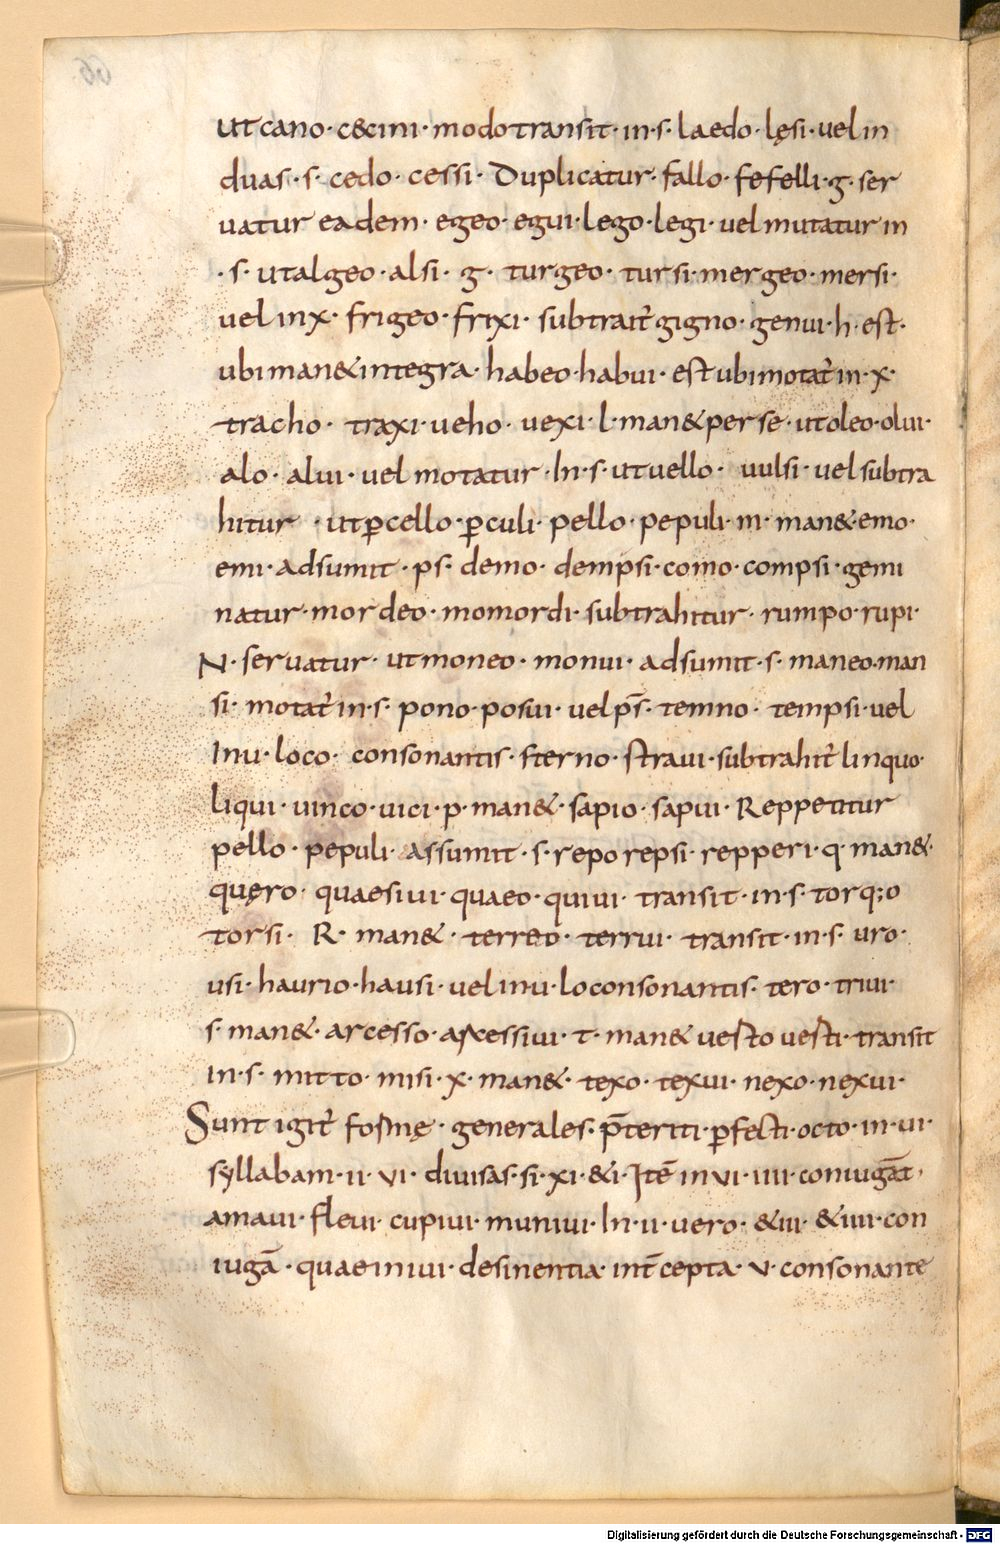 ut cano · cecini · modo transit · in · s · laedo · lęsi · vel in
duas · s · cedo · cessi · Duplicatur · fallo · fefelli · g · ser
uatur eadem · egeo · egui · lego · legi · vel mutatur in
· s · ut algeo · alsi · g · turgeo · tursi · mergeo · mersi ·
vel in x · frigeo · frixi · subtrait᷑ gigno · genui · h · est ·
ubi man& integra · habeo · habui · est ubi motat᷑ in · x ·
tracho · traxi · veho · vexi · l · man& per se · ut oleo · olui ·
alo · alui · vel motatur · In · s · ut vello · vulsi · vel subtra
hitur · ut ꝑcello · ꝑculi · pello · pepuli · m · man& · emo ·
emi · adsumit · ps · demo · dempsi · como · compsi · gemi
natur · mordeo · momordi · subtrahitur · rumpo · rupi ·
N · seruatur · ut moneo · monui · adsumit · s · maneo · man
si · motat᷑ in · s · pono · posui · vel p̄s · temno · tempsi · vel
In u · loco · consonantis · sterno · straui · subtrahit᷑ linquo ·
liqui · uinco · uici · p · man& · sapio · sapui · Reppetitur
pello · pepuli · assumit · s · repo repsi · repperi · q · man& ·
quęro · quaesiui · quaeo · quiui · transit · in · s · torq;o
torsi · R · man& · terreo · terrui · transit · in · s · uro ·
usi · haurio · hausi · vel in u · lo consonantis · tero · triui ·
s · man& · arcesso · arcessiui · t · man& uesto uesti · transit
in · s · mitto · misi · x · man& · texo · texui · nexo · nexui ·
Sunt igit᷑ formę · generales · p̄teriti · ꝑfecti · octo · in · ui ·
syllabam · ii · vi · diuisas · si · xi · & i · Itē in vi · iiii · coniugāt ·
amaui · fleui · cupiui · muniui · In · ii · uero · & iii · & iiii · con
iugā · quae in iui · desinentia · int̄cepta · v · consonante
66
Digitalisierung gefördert durch die Deutsche Forschungsgemeinschaft - DFG